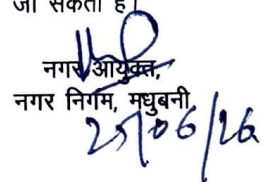 जा सकता है।
नगर आयुक्त,
नगर निगम, मधुबनी
25/06/26